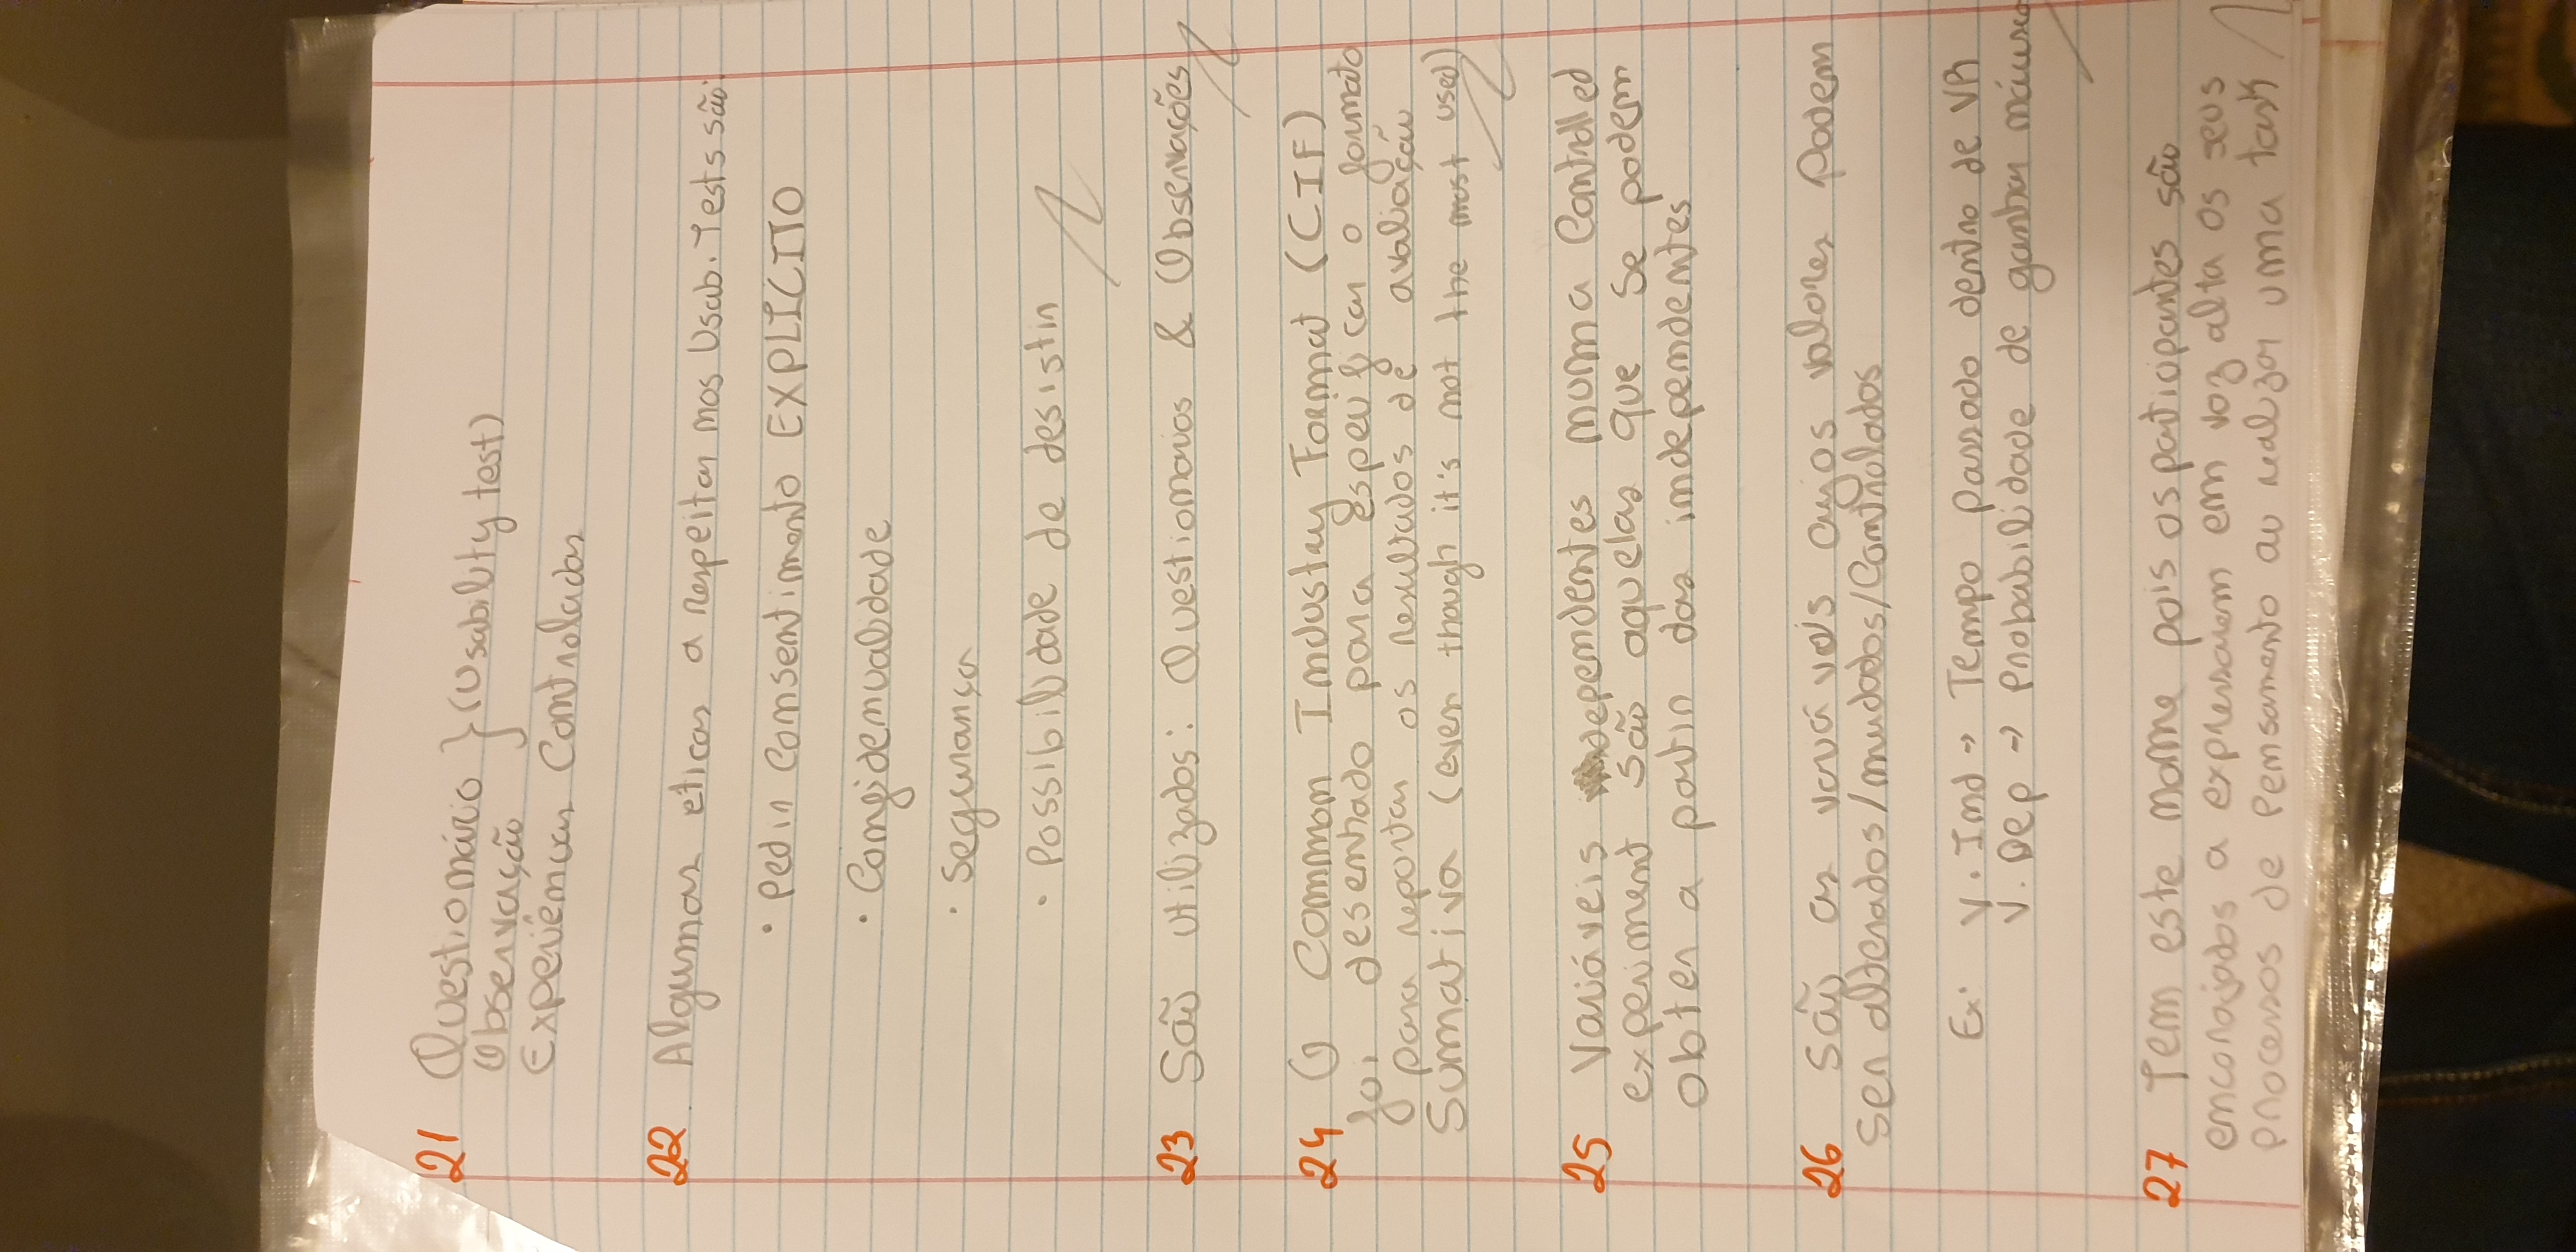 21 Questionário } (Usability test)
Observação
Experiências Controladas
22. Algumas eticas a respeitar nos Usab. Tests são:
• Pedir Consentimento EXPLÍCITO
• Confidencialidade
• Segurança
• Possibilidade de desistir
23 São utilizados: Questionários & Observações
24 O Common Industry Format (CIF)
foi desenhado para especificar o formato
para reportar os resultados de avaliação
Sumativa (even though it's not the most used)
25 Variáveis dependentes numa Controlled
experiment são aquelas que se podem
obter a partir das independentes
26 São as variáveis cujos valores Podem
ser alterados/mudados/Controlados
Ex: V. Ind → Tempo passado dentro de VR
V. Dep → Probabilidade de ganhar náusea
27 Tem este nome pois os participantes são
encorajados a expressarem em voz alta os seus
processos de Pensamento ao realizar uma task